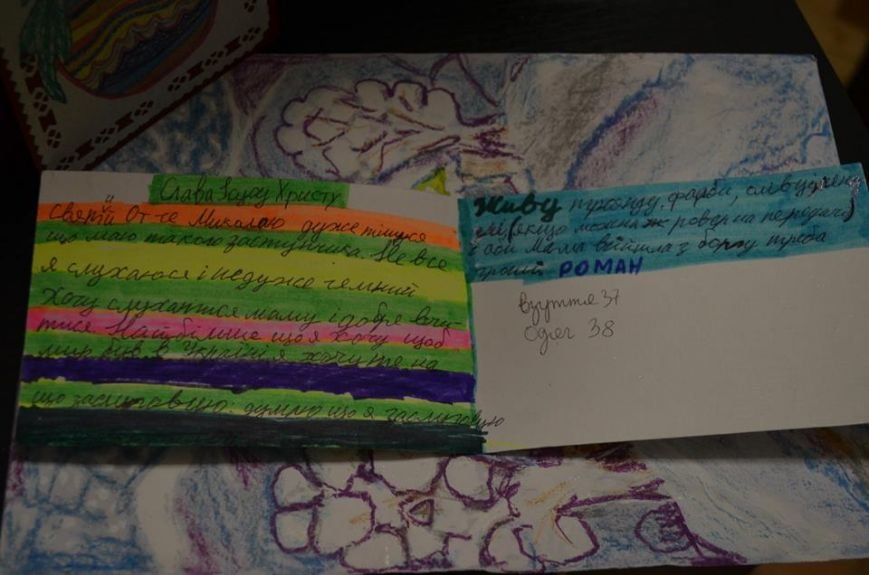 Слава Ісусу Христу
Святий Отче Миколаю дуже тішуся
що маю такого заступника. Не все
я слухаюся і не дуже чемний
Хочу слухатися маму і добре вчи-
тися Найбільше що я хочу щоб
мир був в Україні я хочу те на
що заслуговую. думаю що я заслуговую
Живу троянду, фарби, олівці,
якщо можна ровер на передачі
і аби мама вийшла з боргу треба
грошей РОМАН
взуття 37
одяг 38